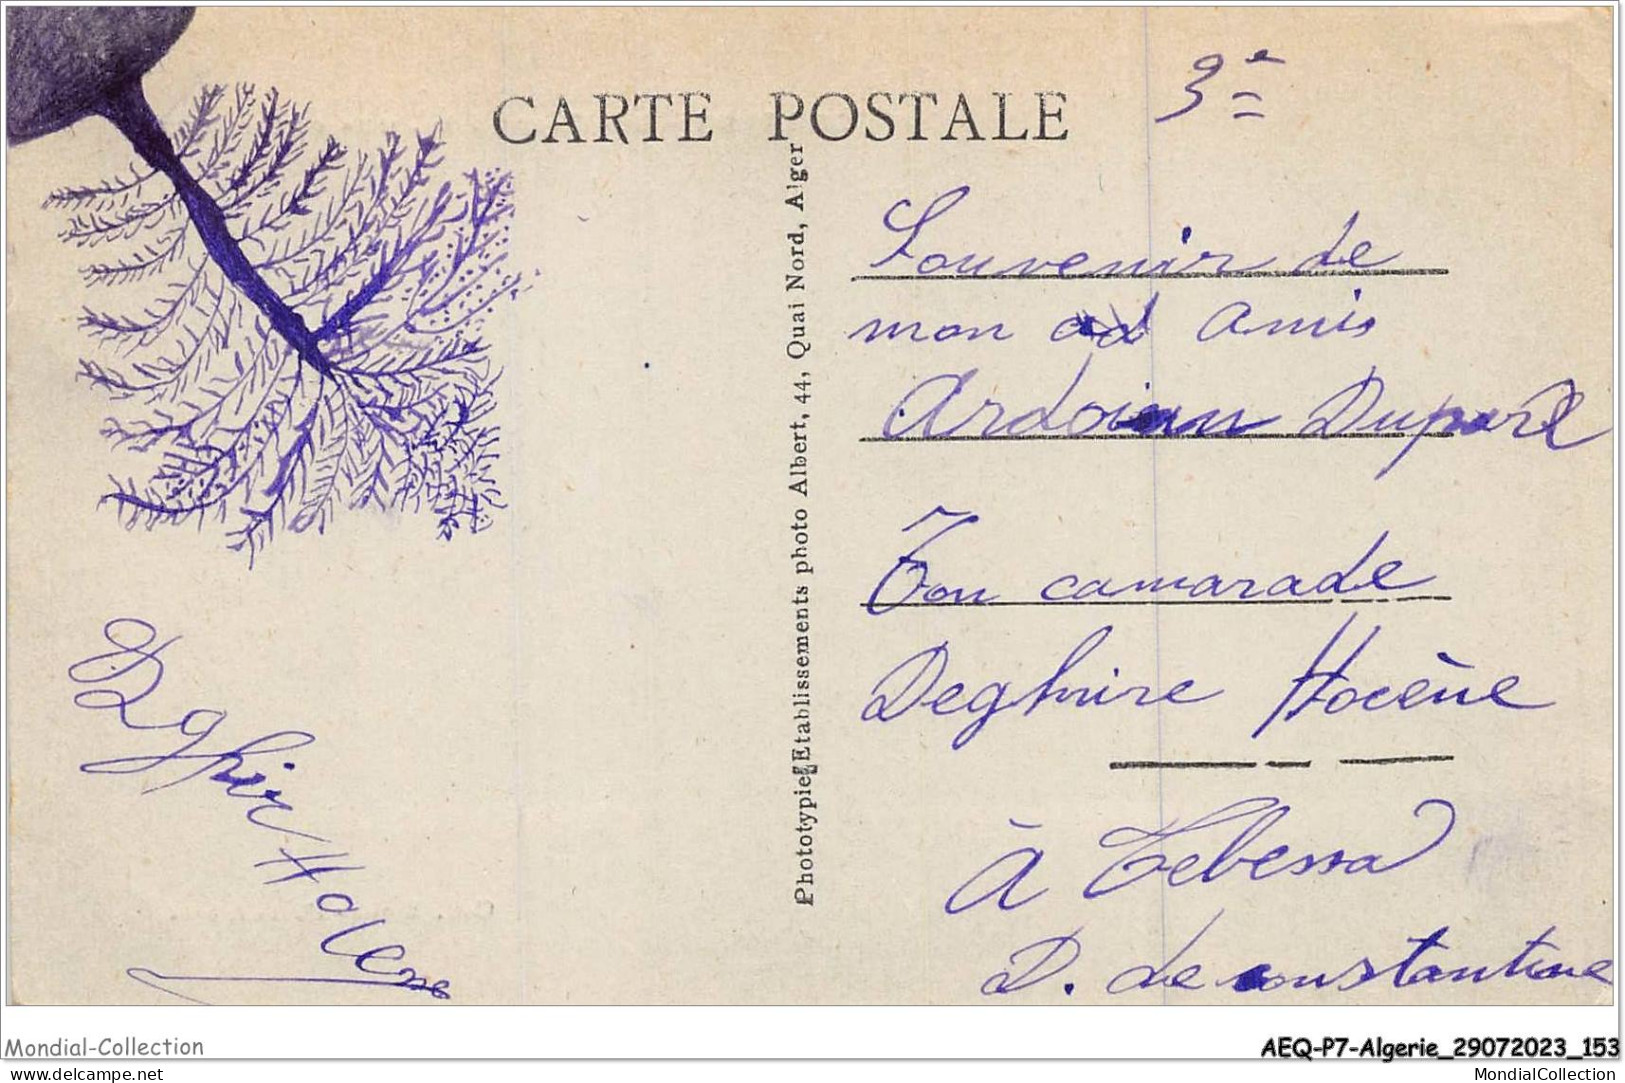 CARTE POSTALE
3e
Souvenir de
mon ad amis
Ardoian Duparl
Ton camarade
Deghire Hocène
à Tebessa
D. de constantine
Phototypie Etablissements photo Albert, 44, Quai Nord, Alger
Dghir Hocene
Mondial-Collection
AEQ-P7-Algerie_29072023_153
delcampe.net
MondialCollection